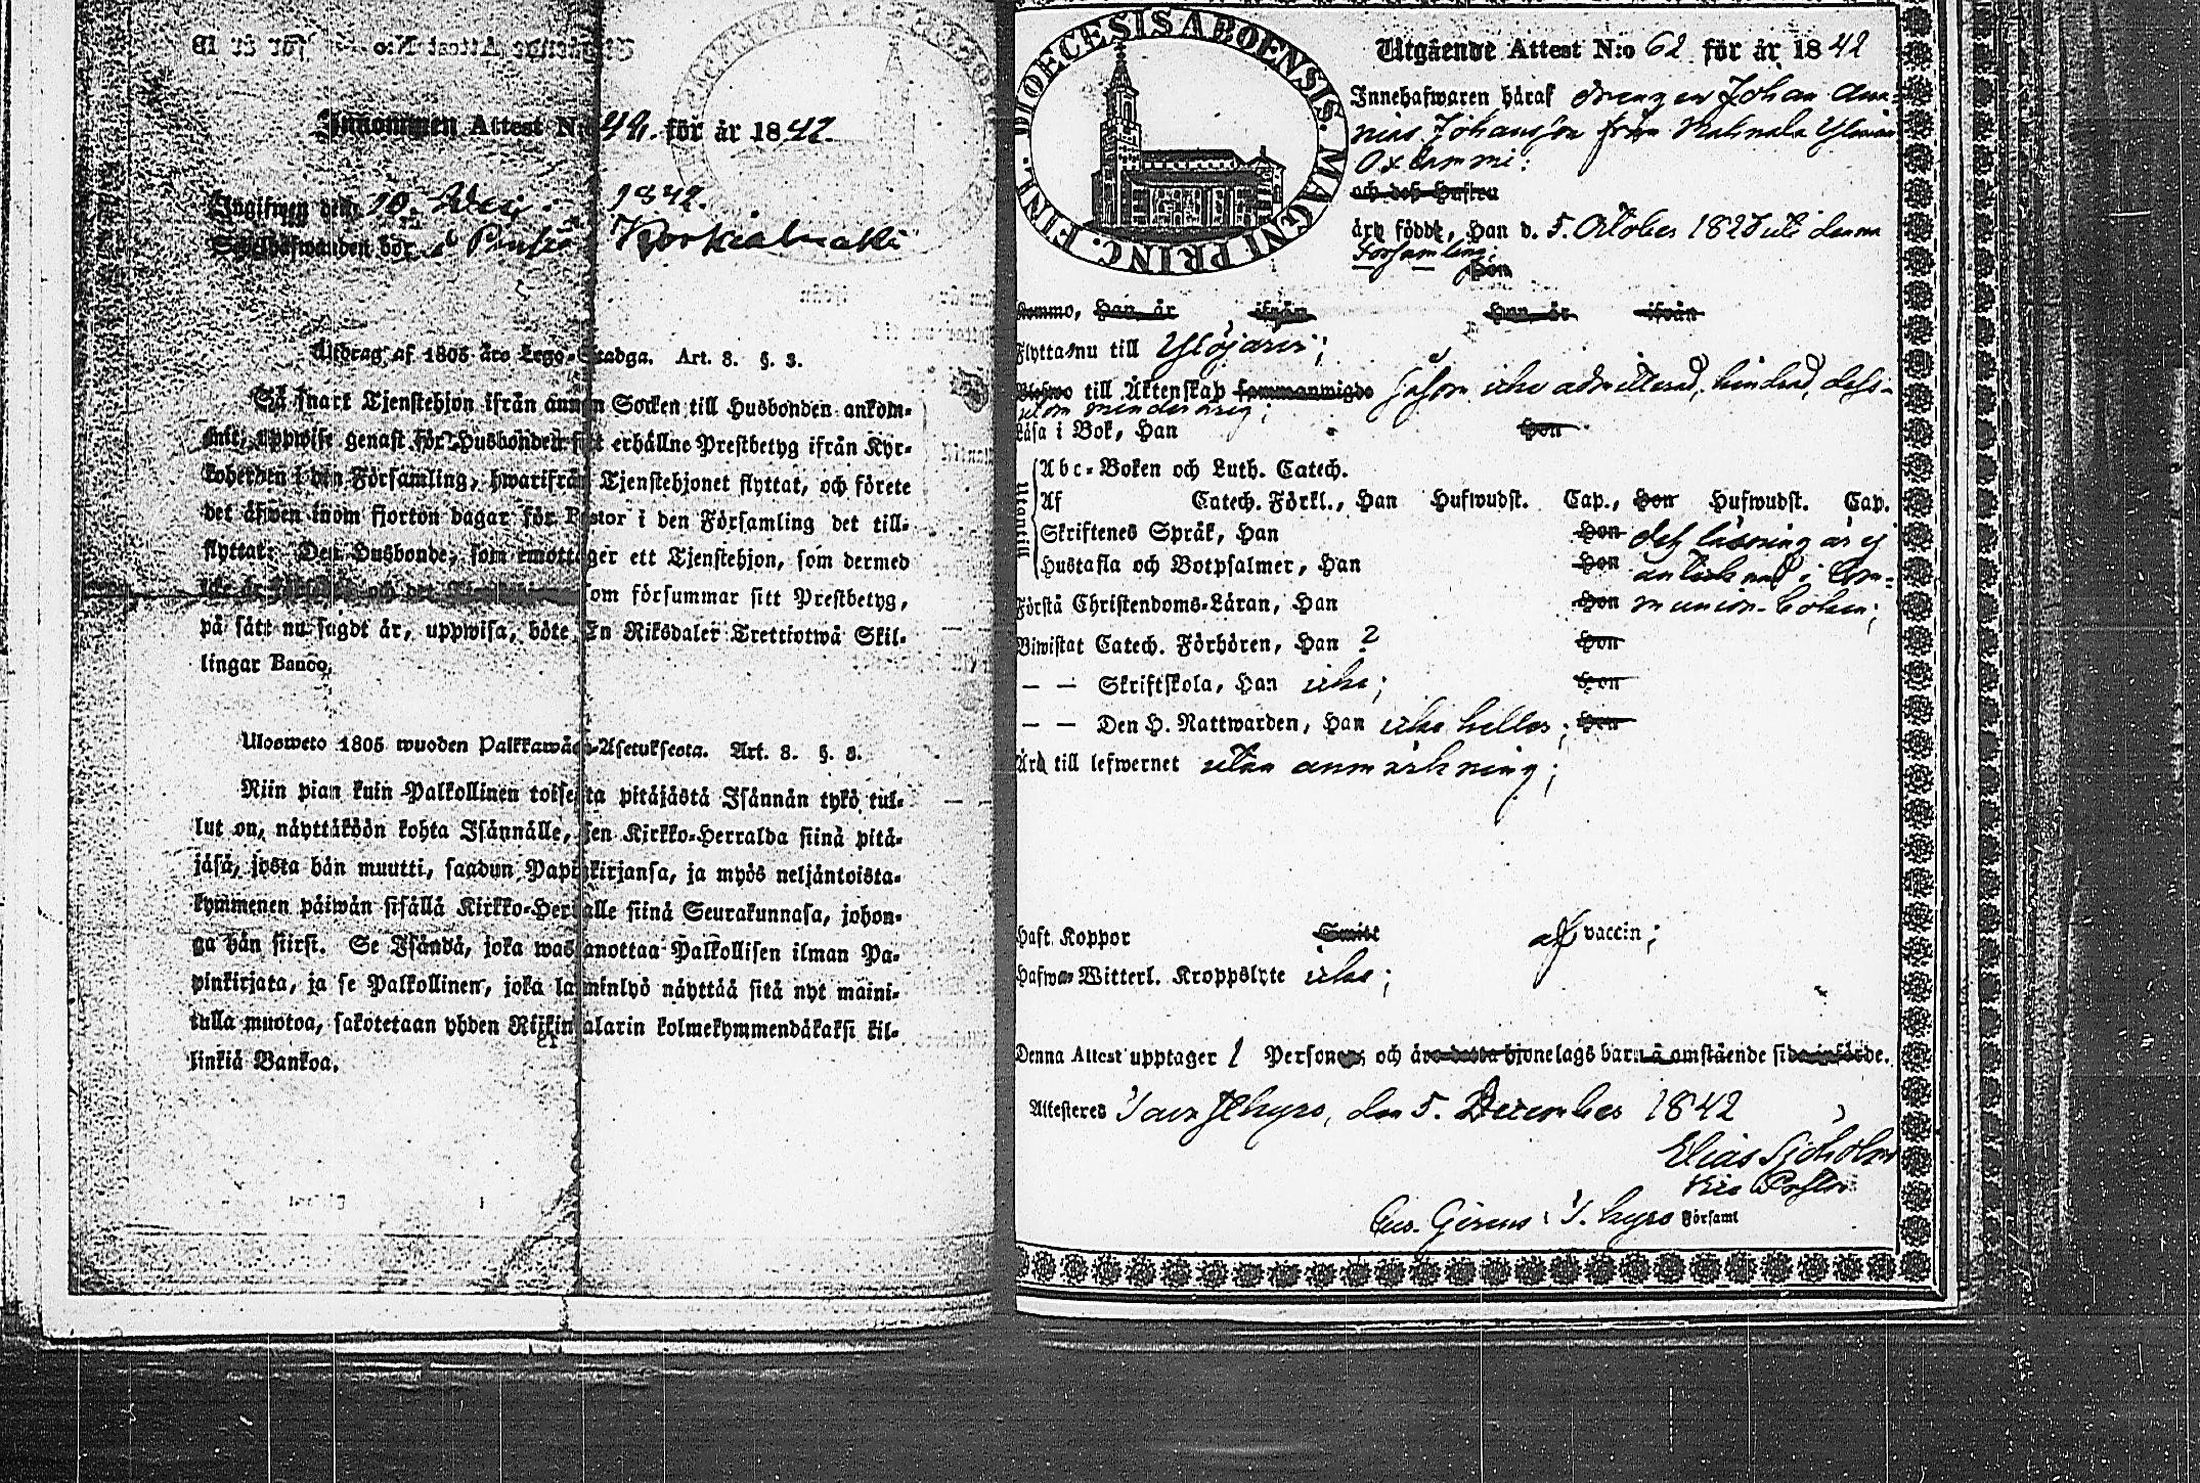 Inkommen Attest N:o 44. för år 1842.
Angifwen den 10 1842.
bor i Korkialmaki
Utdrag af 1805 års Lego-Stadga. Art. 8. §. 3.
Så snart Tjenstehjon ifrån annan Socken till Husbonden ankom-
mit, uppwise genast för Husbonden sitt erhållne Prestbetyg ifrån Kyr-
koherden i den Församling, hwarifrån Tjenstehjonet flyttat, och förete
det äfwen inom fjorton dagar för Pastor i den Församling det till-
flyttat. Den Husbonde, som emottager ett Tjenstehjon, som dermed
och det som försummar sitt Prestbetyg,
på sätt nu sagdt är, uppwisa, böte, En Riksdaler Trettiotwå Skil-
lingar Banco.
Ulosweto 1805 wuoden Palkkawäen-Asetuksesta. Art. 8. §. 3.
Niin pian kuin Palkollinen toisesta pitäjästä Isännän tykö tul-
lut on, näyttäköön kohta Isännälle, sen Kirkko-Herralda siinä pitä-
jäsä, josta hän muutti, saadun Papinkirjansa, ja myös neljäntoista-
kymmenen päiwän sisällä Kirkko-Herralle siinä Seurakunnasa, johon-
ga hän siirsi. Se Isändä, joka wastanottaa Palkollisen ilman Pa-
pinkirjata, ja se Palkollinen, joka laiminlyö näyttää sitä nyt maini-
tulla muotoa, sakotetaan yhden Riikintalarin kolmekymmendäkaksi kil-
linkiä Bankoa.
DIOECESIS ABOENSIS. MAGNI PRINC. FINL.
Utgående Attest N:o 62 för år 1842
Innehafwaren häraf drengen Johan Ana-
nias Johansson från
och dess Hustru
äro födde, Han d. 5. October 1825 uti denna
Församling;
Hon
Komne, Han år ifrån Hon år ifrån
Flytta nu till Ylöjärvi;
till Äktenskap sammanwigde såsom icke admitterad, hindrad, dess-
utom minderårig;
Läsa i Bok, Han Hon
Utantill
Abc-Boken och Luth. Catech.
Af Catech. Förkl., Han Hufwudst. Cap., Hon Hufwudst. Cap.
Skriftenes Språk, Han Hon dess läsning är ej
Hustafla och Botpsalmer, Han Hon antecknad i Com-
Förstå Christendoms-Läran, Han Hon munion-boken;
Biwistat Catech. Förhören, Han ? Hon
— — Skriftskola, Han icke; Hon
— — Den H. Nattwarden, Han icke heller; Hon
Äro till lefwernet utan anmärkning;
Haft Koppor Smitt af vaccin;
Hafwa Witterl. Kroppslyte icke;
Denna Attest upptager 1 Personer, och äro detta hjonelags barn å omstående sida införde.
Attesteres Tavastkyro, den 5. December 1842
Elias Sjöholm
Vice Pastor
i T. kyro Församl